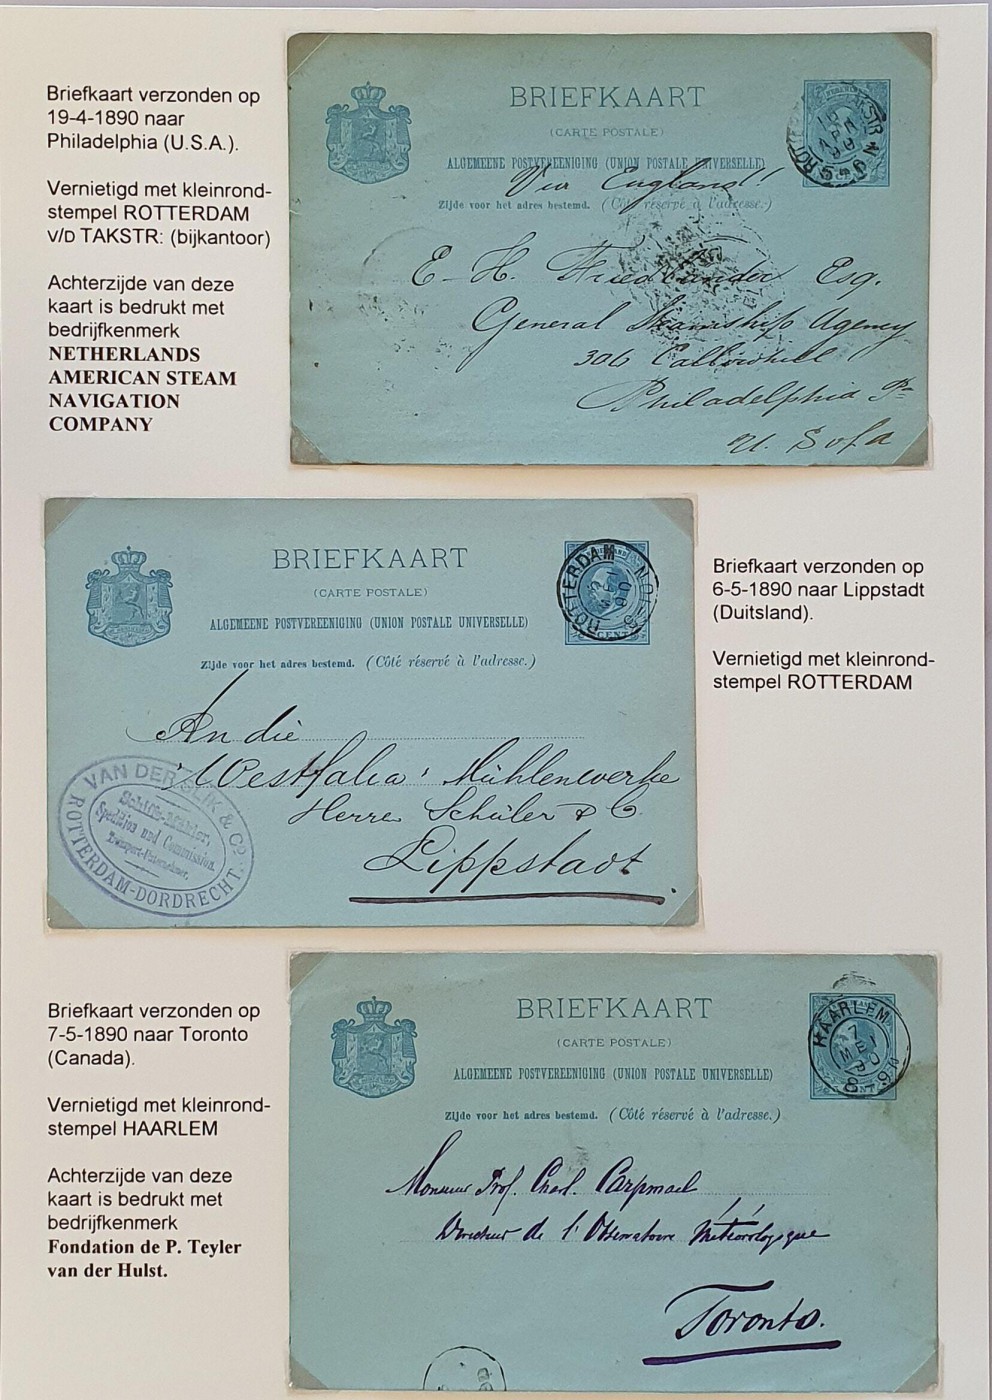 Briefkaart verzonden op
19-4-1890 naar
Philadelphia (U.S.A.).
Vernietigd met kleinrond-
stempel ROTTERDAM
V/D TAKSTR: (bijkantoor)
Achterzijde van deze
kaart is bedrukt met
bedrijfkenmerk
NETHERLANDS
AMERICAN STEAM
NAVIGATION
COMPANY
BRIEFKAART
(CARTE POSTALE)
ALGEMEENE POSTVEREENIGING (UNION POSTALE UNIVERSELLE)
Via England!
Zijde voor het adres bestemd. (Côté réservé à l'adresse.)
E. H. Friedlander Esq.
General Steamship Agency
306 Callowhill
Philadelphia Pa
U. S of a
BRIEFKAART
(CARTE POSTALE)
ALGEMEENE POSTVEREENIGING (UNION POSTALE UNIVERSELLE)
Zijde voor het adres bestemd. (Côté réservé à l'adresse.)
ROTTERDAM
CENT
An die
"Westfalia" Mühlenwerke
Herren Schüler & C.
Lippstadt.
VAN DER SLIK & Co.
Spedition und Commission.
ROTTERDAM-DORDRECHT.
Briefkaart verzonden op
6-5-1890 naar Lippstadt
(Duitsland).
Vernietigd met kleinrond-
stempel ROTTERDAM
Briefkaart verzonden op
7-5-1890 naar Toronto
(Canada).
Vernietigd met kleinrond-
stempel HAARLEM
Achterzijde van deze
kaart is bedrukt met
bedrijfkenmerk
Fondation de P. Teyler
van der Hulst.
BRIEFKAART
(CARTE POSTALE)
ALGEMEENE POSTVEREENIGING (UNION POSTALE UNIVERSELLE)
Zijde voor het adres bestemd. (Côté réservé à l'adresse.)
HAARLEM
7
MEI
90
Monsieur Prof. Charl. Carpmael
Directeur de l'Observatoire Météorologique
Toronto.